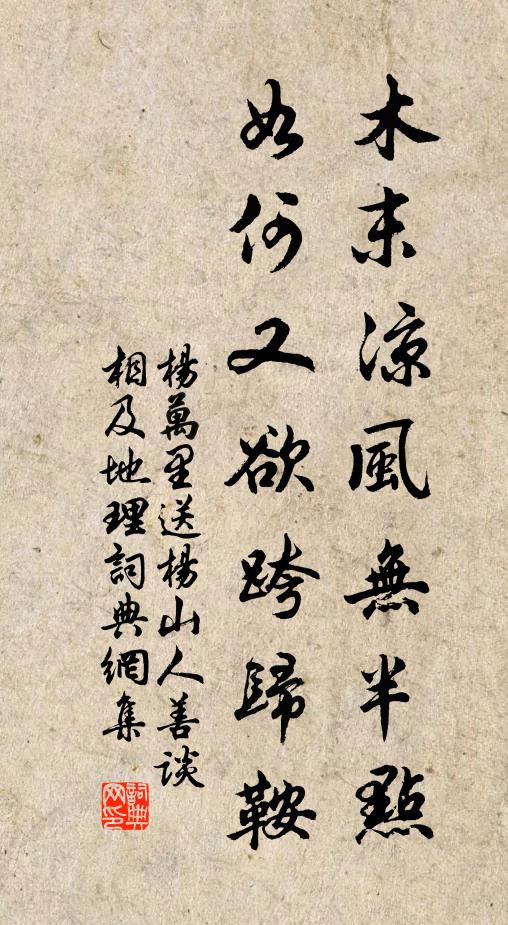 木末涼風無半點
如何又欲跨歸鞍
楊萬里送楊山人善談
相及地理詞典網集
詞典
网印